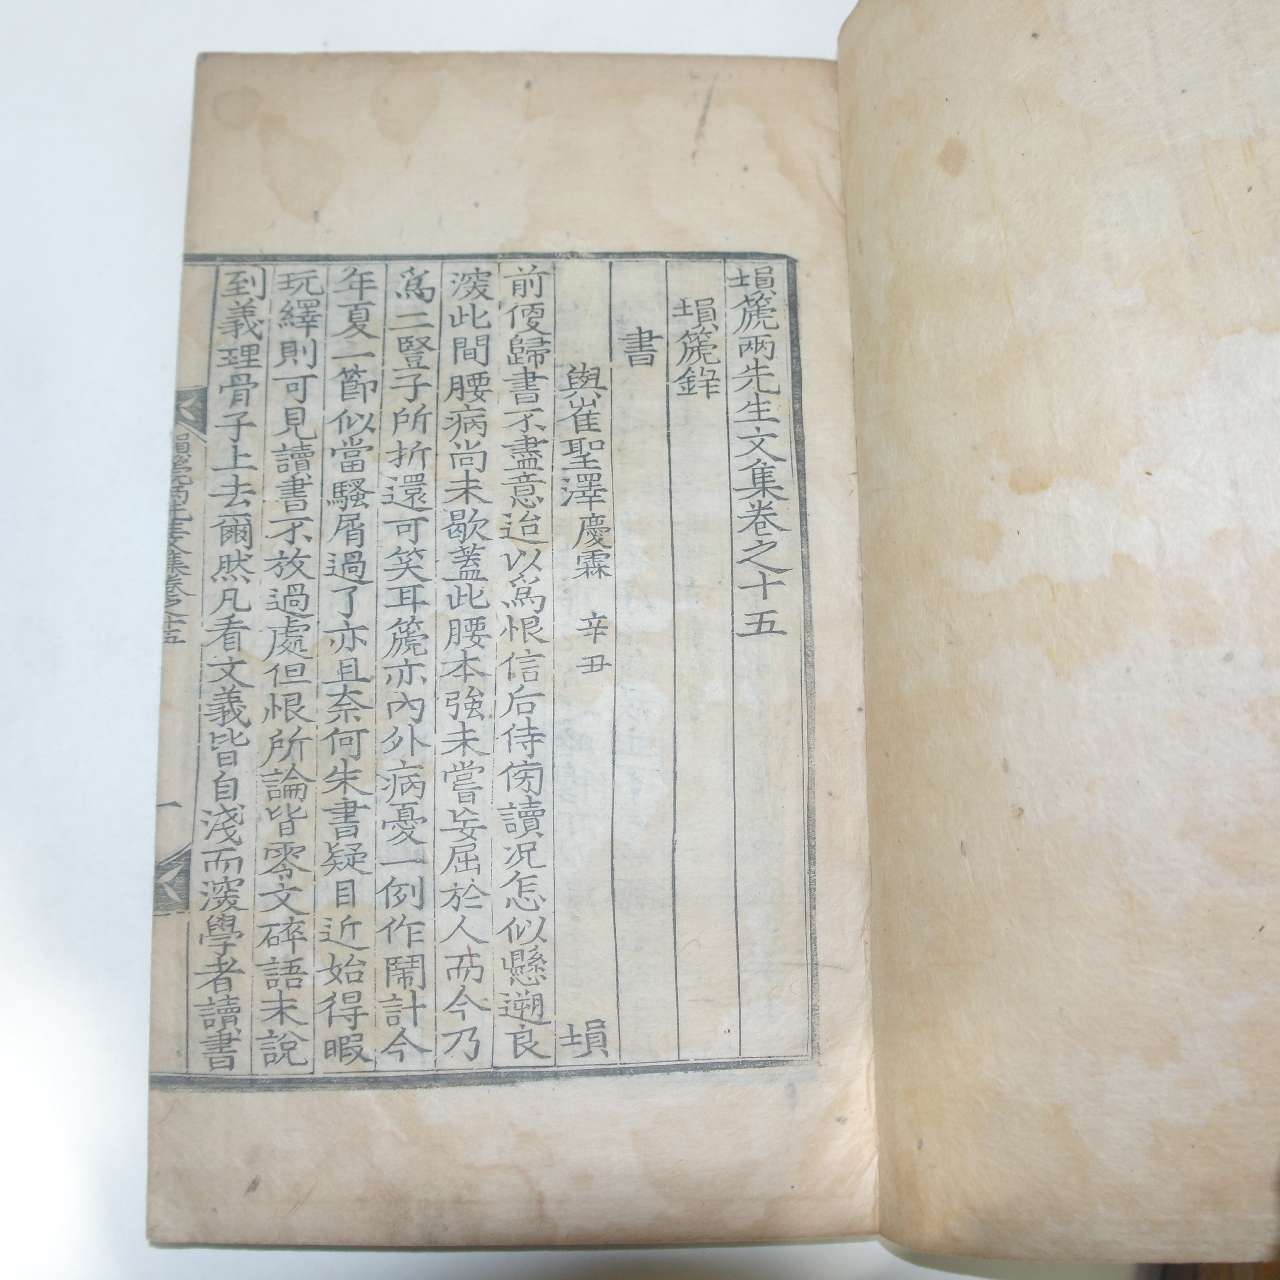 塤篪兩先生文集卷之十五
塤篪錄
書
與崔聖澤慶霖 辛丑 塤
前便歸書不盡意迨以爲恨信后侍傍讀况怎似懸遡良
深此間腰病尚未歇蓋此腰本強未嘗妄屈於人而今乃
爲二豎子所折還可笑耳篪亦內外病憂一例作鬧計今
年夏一節似當騷屑過了亦且奈何朱書疑目近始得暇
玩繹則可見讀書不放過處但恨所論皆零文碎語未說
到義理骨子上去爾然凡看文義皆自淺而深學者讀書
塤篪兩先生文集卷之十五
一